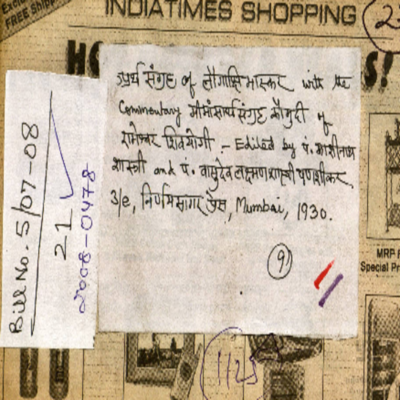 INDIATIMES SHOPPING
FREE Shipp
अर्थसंग्रह of लौगाक्षि भास्कर with the
Commentary मीमांसार्थसंग्रह कौमुदी of
रामेश्वर शिवयोगी - Edited by पं. काशीनाथ
शास्त्री and पं. वासुदेव लक्ष्मणशास्त्री पणशीकर
3/e, निर्णयसागर प्रेस, Mumbai, 1930.
9
Bill No. 5/07-08
21
2008-0478
MRP
Special Pr
1125